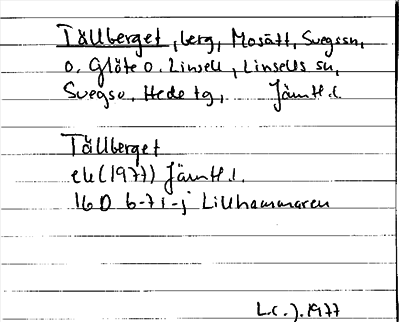 Tällberget, berg, Mosätt, Svegssn,
o. Glöte o. Linsell, Linsells sn,
Svegs o. Hede tg, Jämtl. l.
Tällberget
ek (1977) Jämtl. l.
16 D 6-7 i-j Lillhammaren
L.C.J. 1977